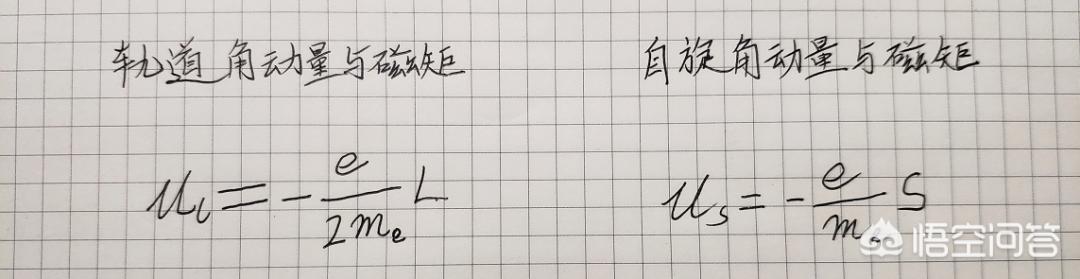 轨道角动量与磁矩 自旋角动量与磁矩
μ_l = -\frac{e}{2m_e} L μ_s = -\frac{e}{m_e} S
悟空问答